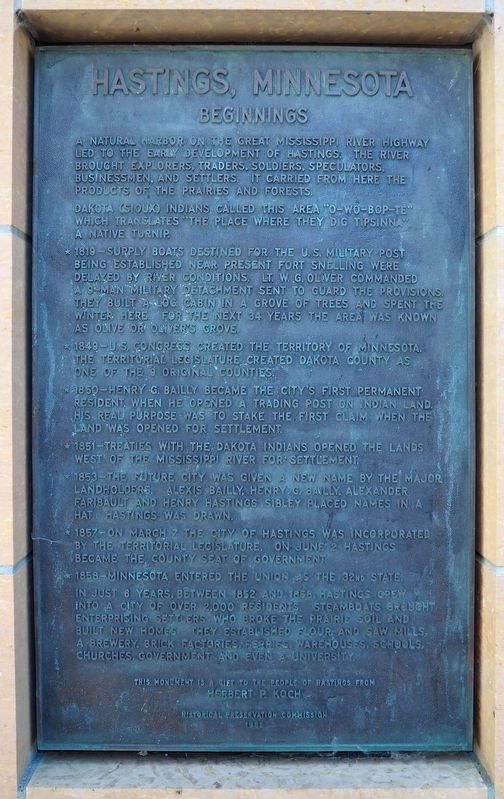 HASTINGS, MINNESOTA
BEGINNINGS
A NATURAL HARBOR ON THE GREAT MISSISSIPPI RIVER HIGHWAY
LED TO THE EARLY DEVELOPMENT OF HASTINGS. THE RIVER
BROUGHT EXPLORERS, TRADERS, SOLDIERS, SPECULATORS,
BUSINESSMEN, AND SETTLERS. IT CARRIED FROM HERE THE
PRODUCTS OF THE PRAIRIES AND FORESTS.
DAKOTA (SIOUX) INDIANS CALLED THIS AREA "O-WO-BOP-TE"
WHICH TRANSLATES "THE PLACE WHERE THEY DIG TIPSINNA"
A NATIVE TURNIP.
* 1819—SUPPLY BOATS DESTINED FOR THE U.S. MILITARY POST
BEING ESTABLISHED NEAR PRESENT FORT SNELLING WERE
DELAYED BY RIVER CONDITIONS. LT. W. G. OLIVER COMMANDED
A MAN MILITARY DETACHMENT SENT TO GUARD THE PROVISIONS.
THEY BUILT A LOG CABIN IN A GROVE OF TREES AND SPENT THE
WINTER HERE. FOR THE NEXT 34 YEARS THE AREA WAS KNOWN
AS OLIVE OR OLIVER'S GROVE.
* 1849—U.S. CONGRESS CREATED THE TERRITORY OF MINNESOTA.
THE TERRITORIAL LEGISLATURE CREATED DAKOTA COUNTY AS
ONE OF THE 9 ORIGINAL COUNTIES.
* 1850—HENRY G. BAILLY BECAME THE CITY'S FIRST PERMANENT
RESIDENT WHEN HE OPENED A TRADING POST ON INDIAN LAND.
HIS REAL PURPOSE WAS TO STAKE THE FIRST CLAIM WHEN THE
LAND WAS OPENED FOR SETTLEMENT.
* 1851—TREATIES WITH THE DAKOTA INDIANS OPENED THE LANDS
WEST OF THE MISSISSIPPI RIVER FOR SETTLEMENT.
* 1853—THE FUTURE CITY WAS GIVEN A NEW NAME BY THE MAJOR
LANDHOLDERS. ALEXIS BAILLY, HENRY G. BAILLY, ALEXANDER
FARIBAULT AND HENRY HASTINGS SIBLEY PLACED NAMES IN A
HAT. HASTINGS WAS DRAWN.
* 1857—ON MARCH 7 THE CITY OF HASTINGS WAS INCORPORATED
BY THE TERRITORIAL LEGISLATURE. ON JUNE 2 HASTINGS
BECAME THE COUNTY SEAT OF GOVERNMENT.
* 1858—MINNESOTA ENTERED THE UNION AS THE 32ND STATE.
IN JUST 6 YEARS, BETWEEN 1852 AND 1858, HASTINGS GREW
INTO A CITY OF OVER 2,000 RESIDENTS. STEAMBOATS BROUGHT
ENTERPRISING SETTLERS WHO BROKE THE PRAIRIE SOIL AND
BUILT NEW HOMES. THEY ESTABLISHED FLOUR AND SAW MILLS,
A BREWERY, BRICK FACTORIES, FERRIES, WAREHOUSES, SCHOOLS,
CHURCHES, GOVERNMENT, AND EVEN A UNIVERSITY.
THIS MONUMENT IS A GIFT TO THE PEOPLE OF HASTINGS FROM
HERBERT P. KOCH
HISTORICAL PRESERVATION COMMISSION